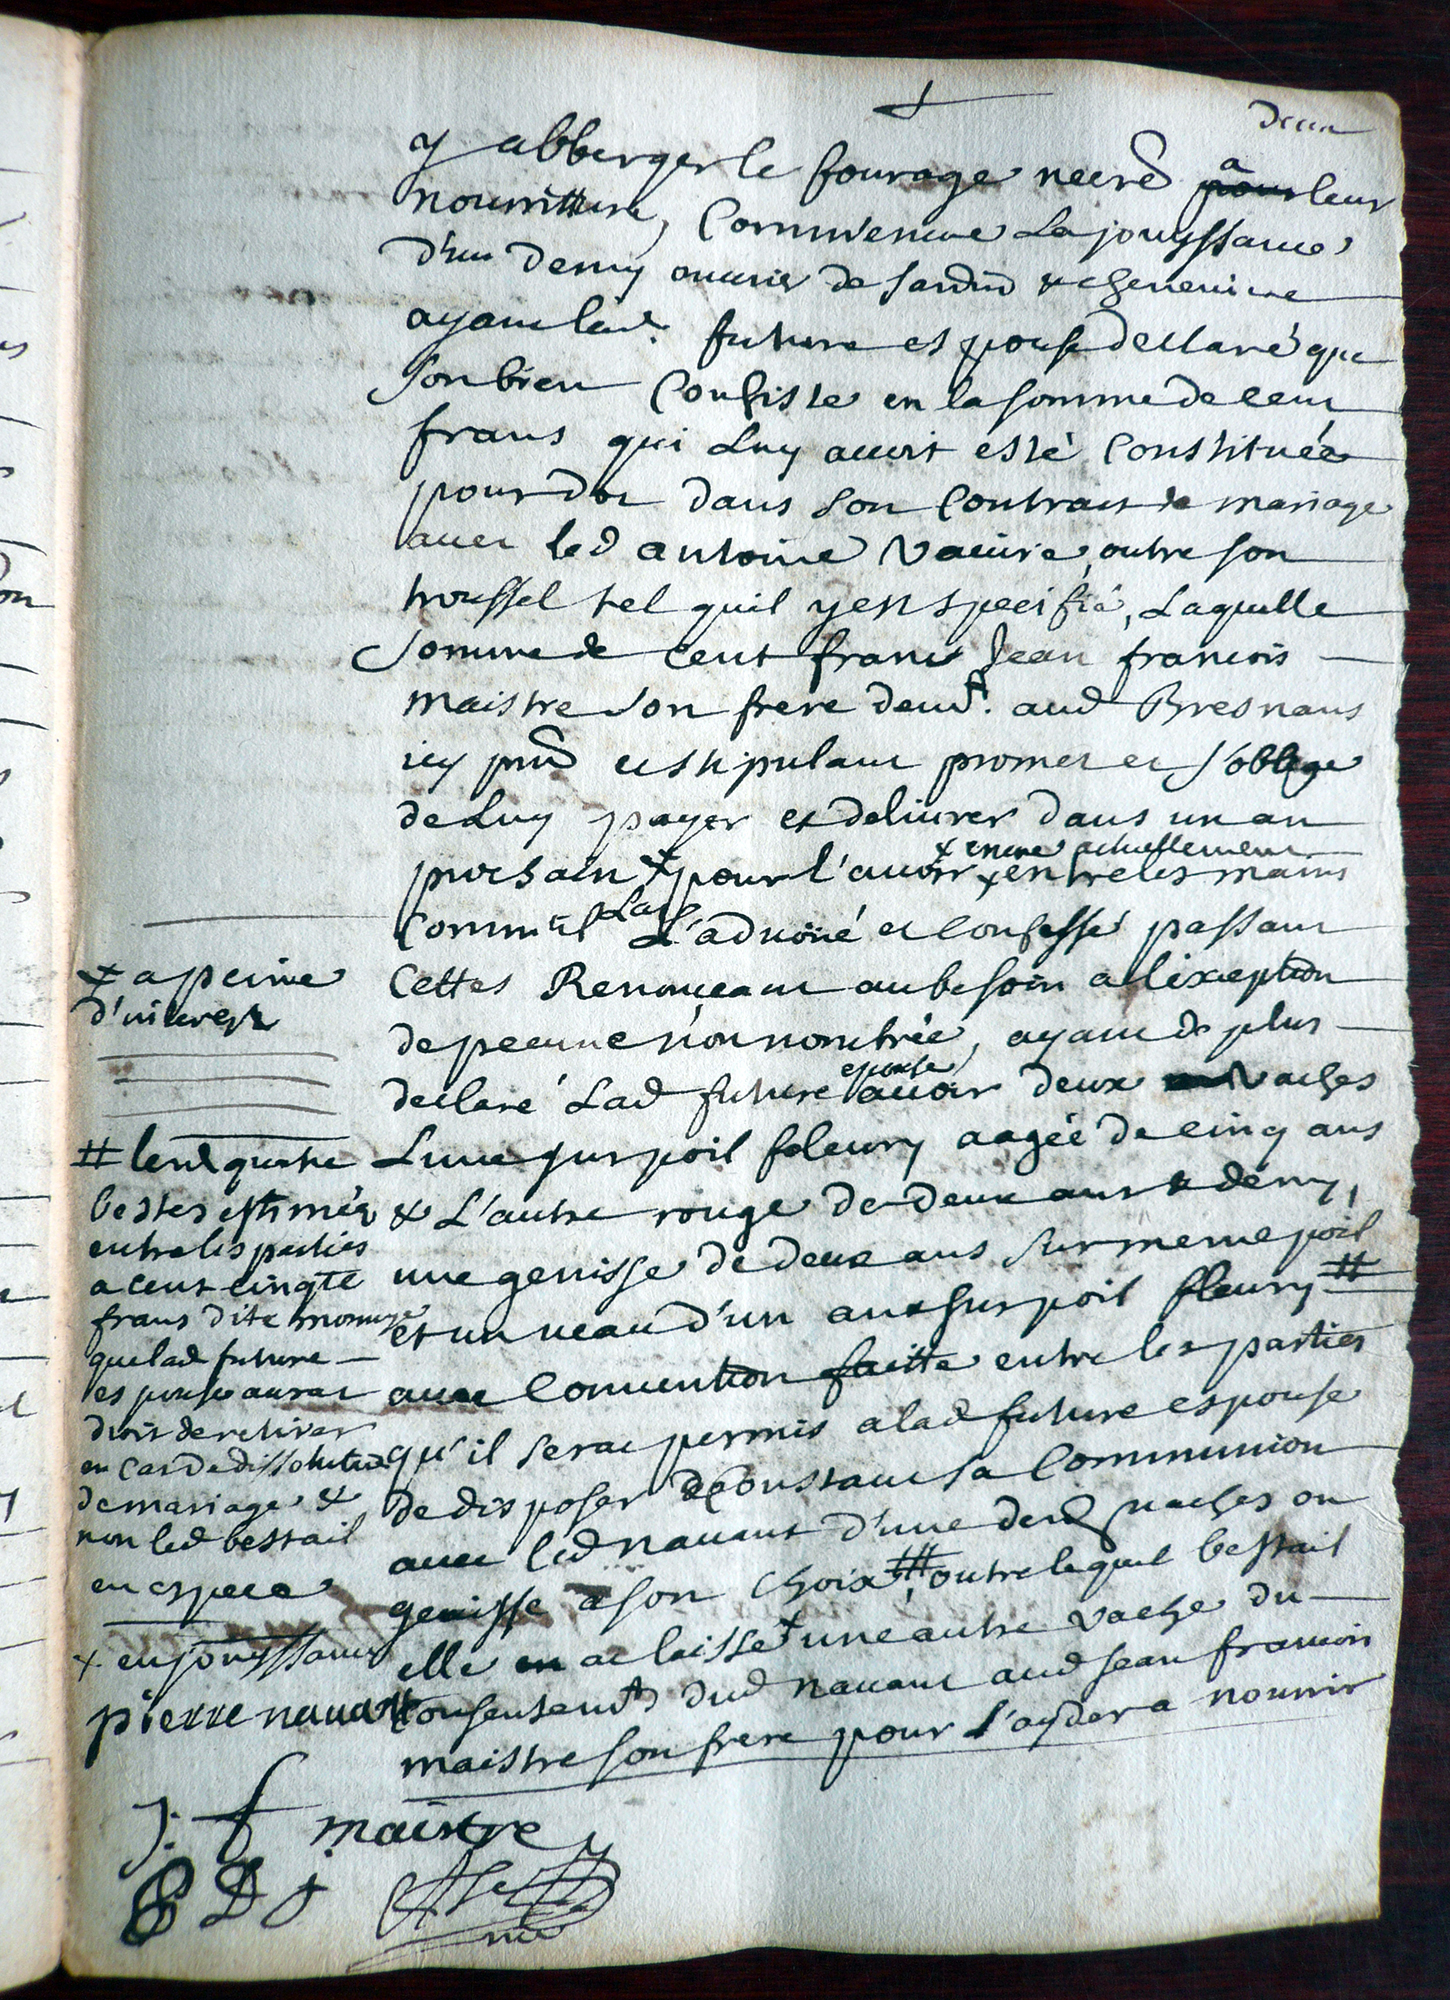 deux
y abberger le fourage necre a leur
nourritture, Comm'encune La jouyssance
d'un demy ouurier de Jardin & cheneuiere
ayant lad. future espouse declaré que
son bien Consiste en la somme de cent
frans qui Luy auoit esté Constituée
pour dot dans son Contract de mariage
auec led antoine Vacuire, outre son
troussel tel quil y est specifié, Laquelle
somme de cent frans Jean francois
maistre son frere demt. aud Bresnans
icy pnt et stipulant promet et s'oblige
de Luy payer et deliurer dans un an
prochain + pour l'auoir x entre les mains
x encune actuellement
Comm'il La L'aduoué et Confessé passant
Cettes Renonceant au besoin a l'exception
de pecune non nombrée, ayant de plus
declaré Lad future espouse auoir deux vaches
L'une sur poil fleury aagée de cinq ans
& L'autre rouge de deux ans & demy,
une genisse de deux ans sur meme poil
et un ueau d'un an & sur poil fleury #
auec Conuention faitte entre les parties
qu'il serat permis a lad future espouse
de disposer Constant sa Communion
auec led nauant d'une desd vaches ou
genisse a son Choix ##, outre lequel bestail
elle at laissé + une autre vache du
Consentemt dud nauant aud Jean francois
maistre son frere pour L'ayder a nourrir
+ a peine
d'interest
# lesd quatre
bestes estimées
entre les parties
a cent cinqte
frans dite monnoye
que lad future
espouse aurat
droit de retirer
en cas de dissolution
de mariage &
non led bestail
en espece
x en jouyssance
pierre nauant
J. f maistre